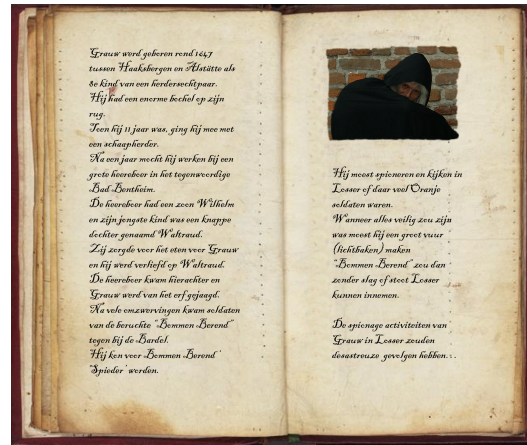 Grauw werd geboren rond 1647
tussen Haaksbergen en Alstätte als
8e kind van een herdersechtpaar.
Hij had een enorme bochel op zijn
rug.
Toen hij 11 jaar was, ging hij mee met
een schaapherder.
Na een jaar mocht hij werken bij een
grote heereboer in het tegenwoordige
Bad Bentheim.
De heereboer had een zoon Wilhelm
en zijn jongste kind was een knappe
dochter genaamd Waltraud.
Zij zorgde voor het eten voor Grauw
en hij werd verliefd op Waltraud.
De heereboer kwam hierachter en
Grauw werd van het erf gejaagd.
Na vele omzwervingen kwam soldaten
van de beruchte "Bommen Berend"
tegen bij de Bardel.
Hij kon voor Bommen Berend '
'Spieder' worden.
Hij moest spioneren en kijken in
Losser of daar veel Oranje
soldaten waren.
Wanneer alles veilig zou zijn
was moest hij een groot vuur
(lichtbaken) maken
"Bommen Berend" zou dan
zonder slag of stoot Losser
kunnen innemen.
De spionage activiteiten van
Grauw in Losser zouden
desastreuze gevolgen hebben. . .